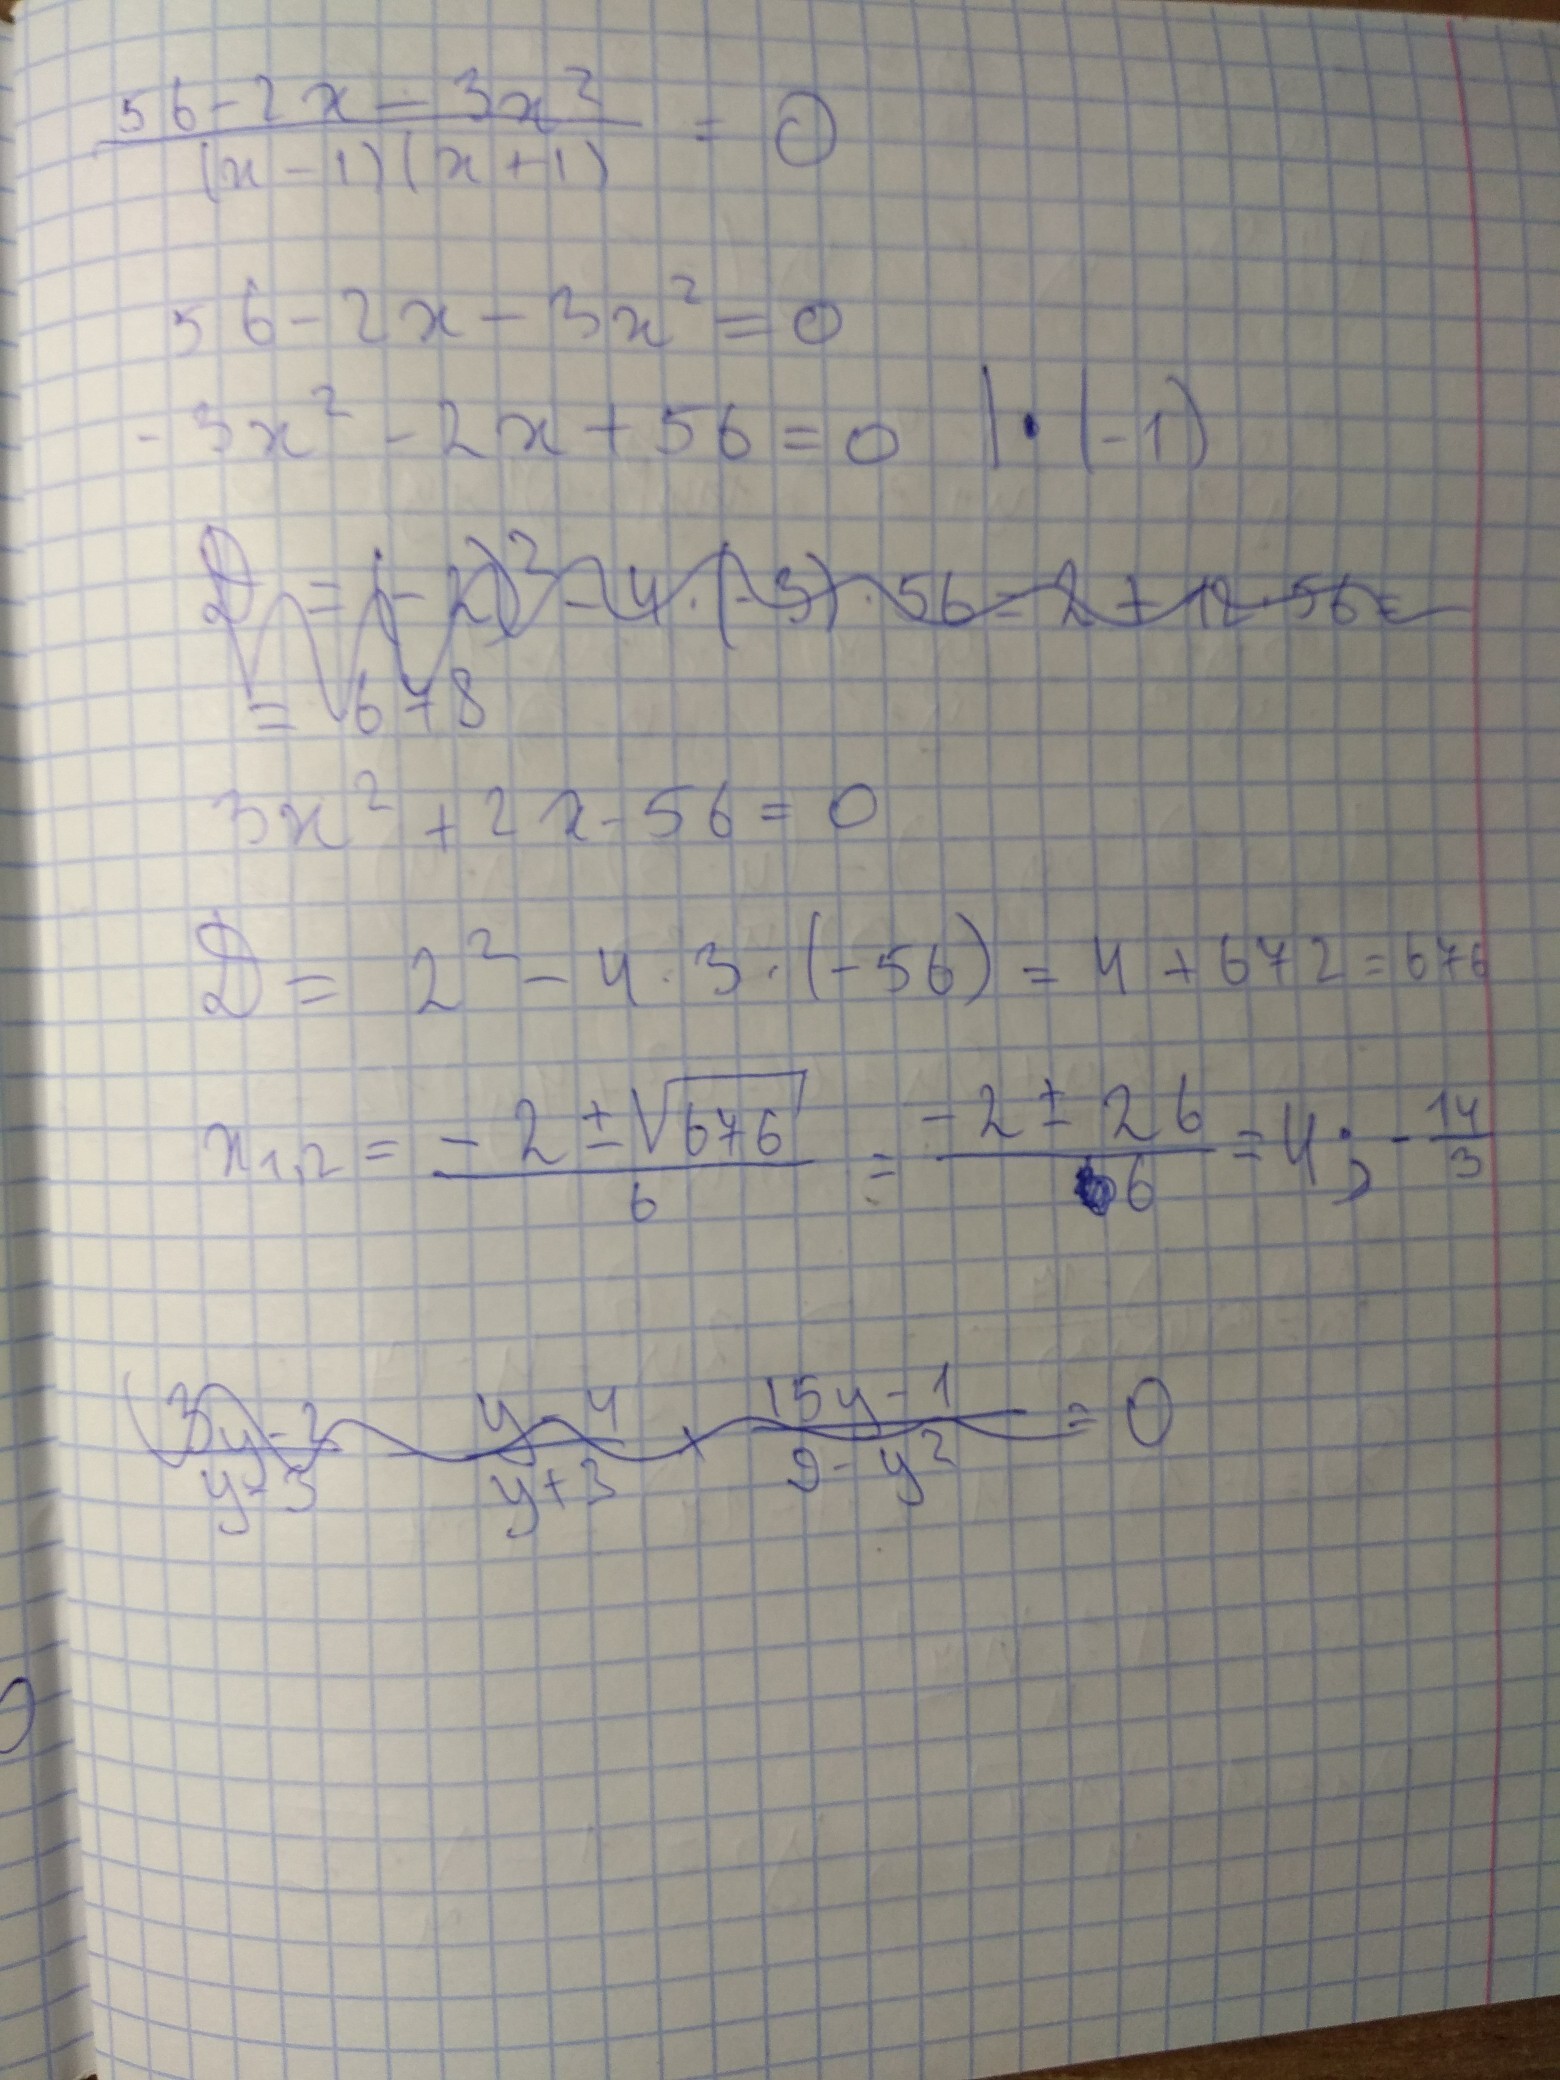 56-2x-3x²
(x-1)(x+1) = 0
56-2x-3x²=0
-3x²-2x+56=0 |·(-1)
D=(-2)²-4·(-3)·56=2+12·56=
=678
3x²+2x-56=0
D= 2²-4·3·(-56)=4+672=676
x1,2= -2±√676 / 6 = -2±26 / 6 =4; -14/3
3y-2 / y+3 y-4 / y+3 15y-1 / 9-y² =0